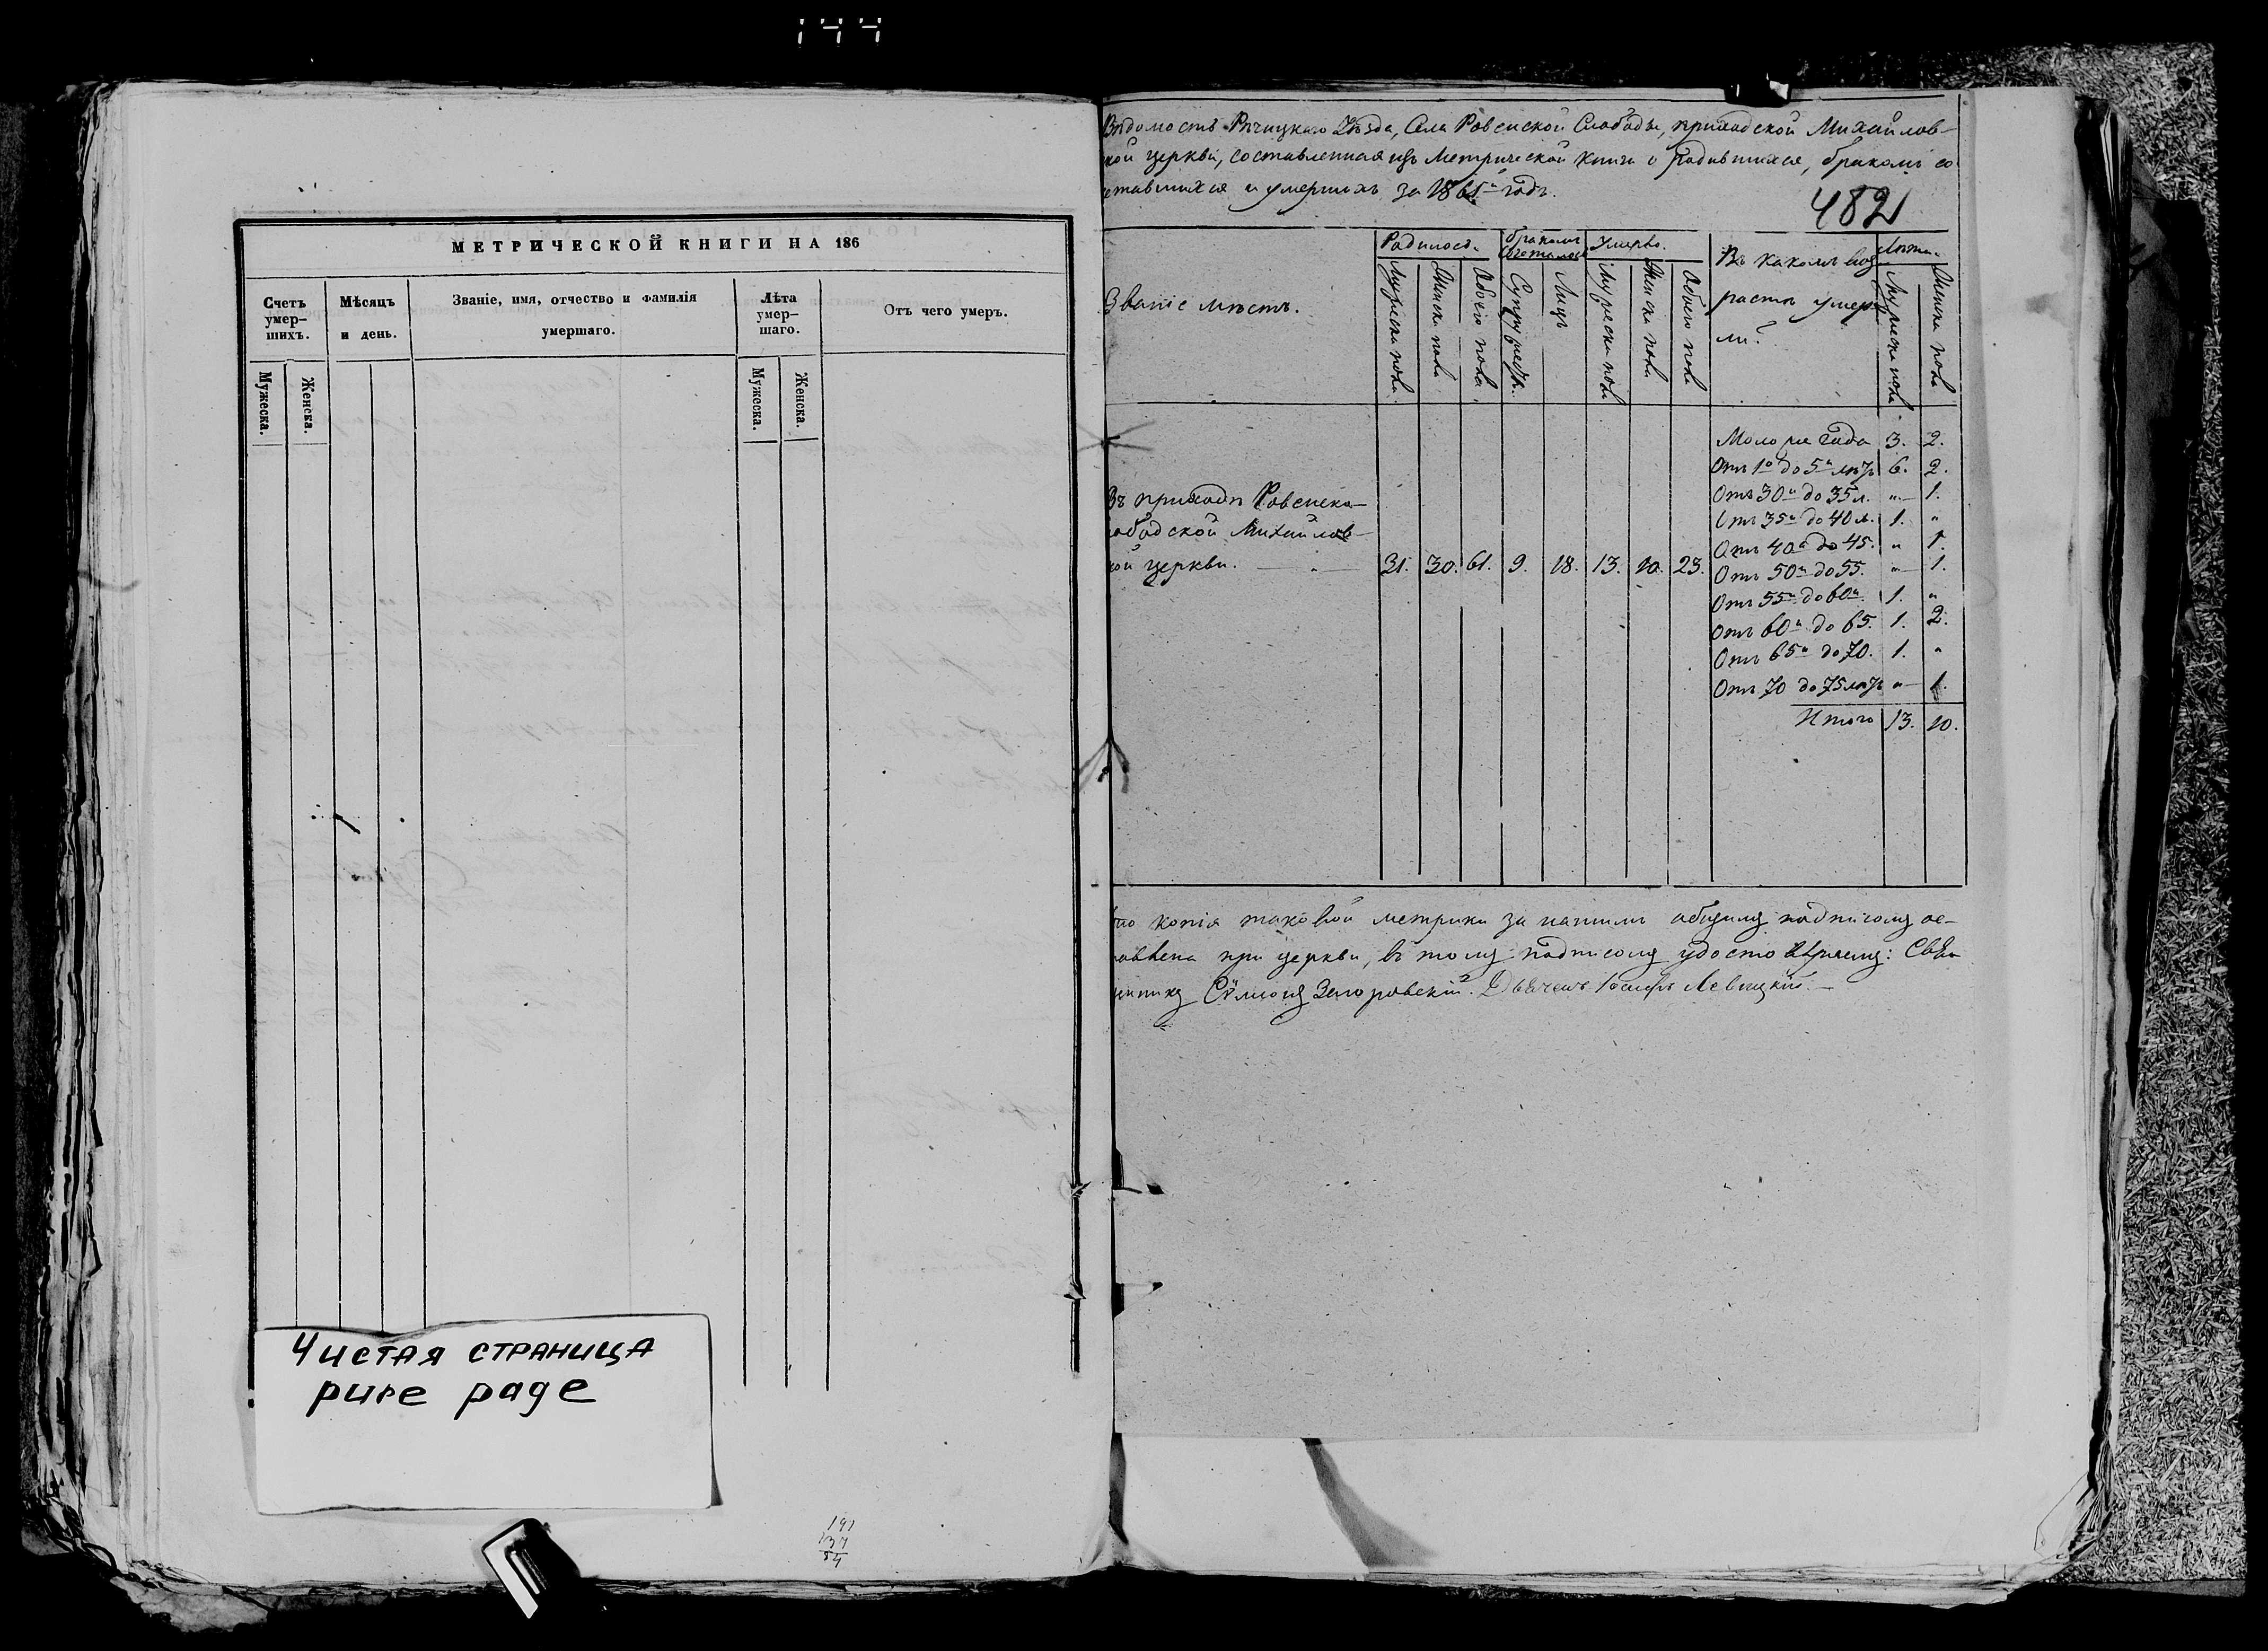 144
МЕТРИЧЕСКОЙ КНИГИ НА 186
Счетъ умер-шихъ.
Мѣсяцъ и день.
Званіе, имя, отчество и фамилія умершаго.
Лѣта умер-шаго.
Отъ чего умеръ.
Мужеска.
Женска.
Мужеска.
Женска.
Чистая страница
pure page
191
137
54
Вѣдомость Рѣчицкаго Уѣзда, Села Ровенской Слободы, приходской Михайлов-
кой церкви, составленная изъ Метрической книги о родившихся, бракомъ со
ставшихся и умершихъ за 1861й годъ.
482
Званіе мѣстъ.
Родилось.
Бракомъ Сочеталось
Умерло.
Въ какомъ воз
растѣ умер
ли?
Лѣта.
Мужеска пола.
Женска пола
Обоего пола.
Супружеств.
Лицъ
Мужеска пола
Женска пола
Обоего пола
Мужеска пола
Женска пола
Въ приходѣ Ровенско-
ободской Михайлов-
кой церкви. 31. 30. 61. 9. 18. 13. 10. 23.
Моложе года 3. 2.
Отъ 1о до 5и лѣтъ 6. 2.
Отъ 30и до 35 л. „ 1.
Отъ 35и до 40 л. 1. „
Отъ 40а до 45. „ 1.
Отъ 50и до 55. „ 1.
Отъ 55и до 60и. 1. „
Отъ 60и до 65. 1. 2.
Отъ 65и до 70. 1. „
Отъ 70 до 75 лѣтъ „ 1.
Итого 13. 10.
что копія таковой метрики за нашимъ общимъ подписомъ ос-
тавлена при церкви, въ томъ подписомъ удостовѣряемъ: Свя
щникъ Загоровскій. Дьячекъ Іосифъ Левицкій.